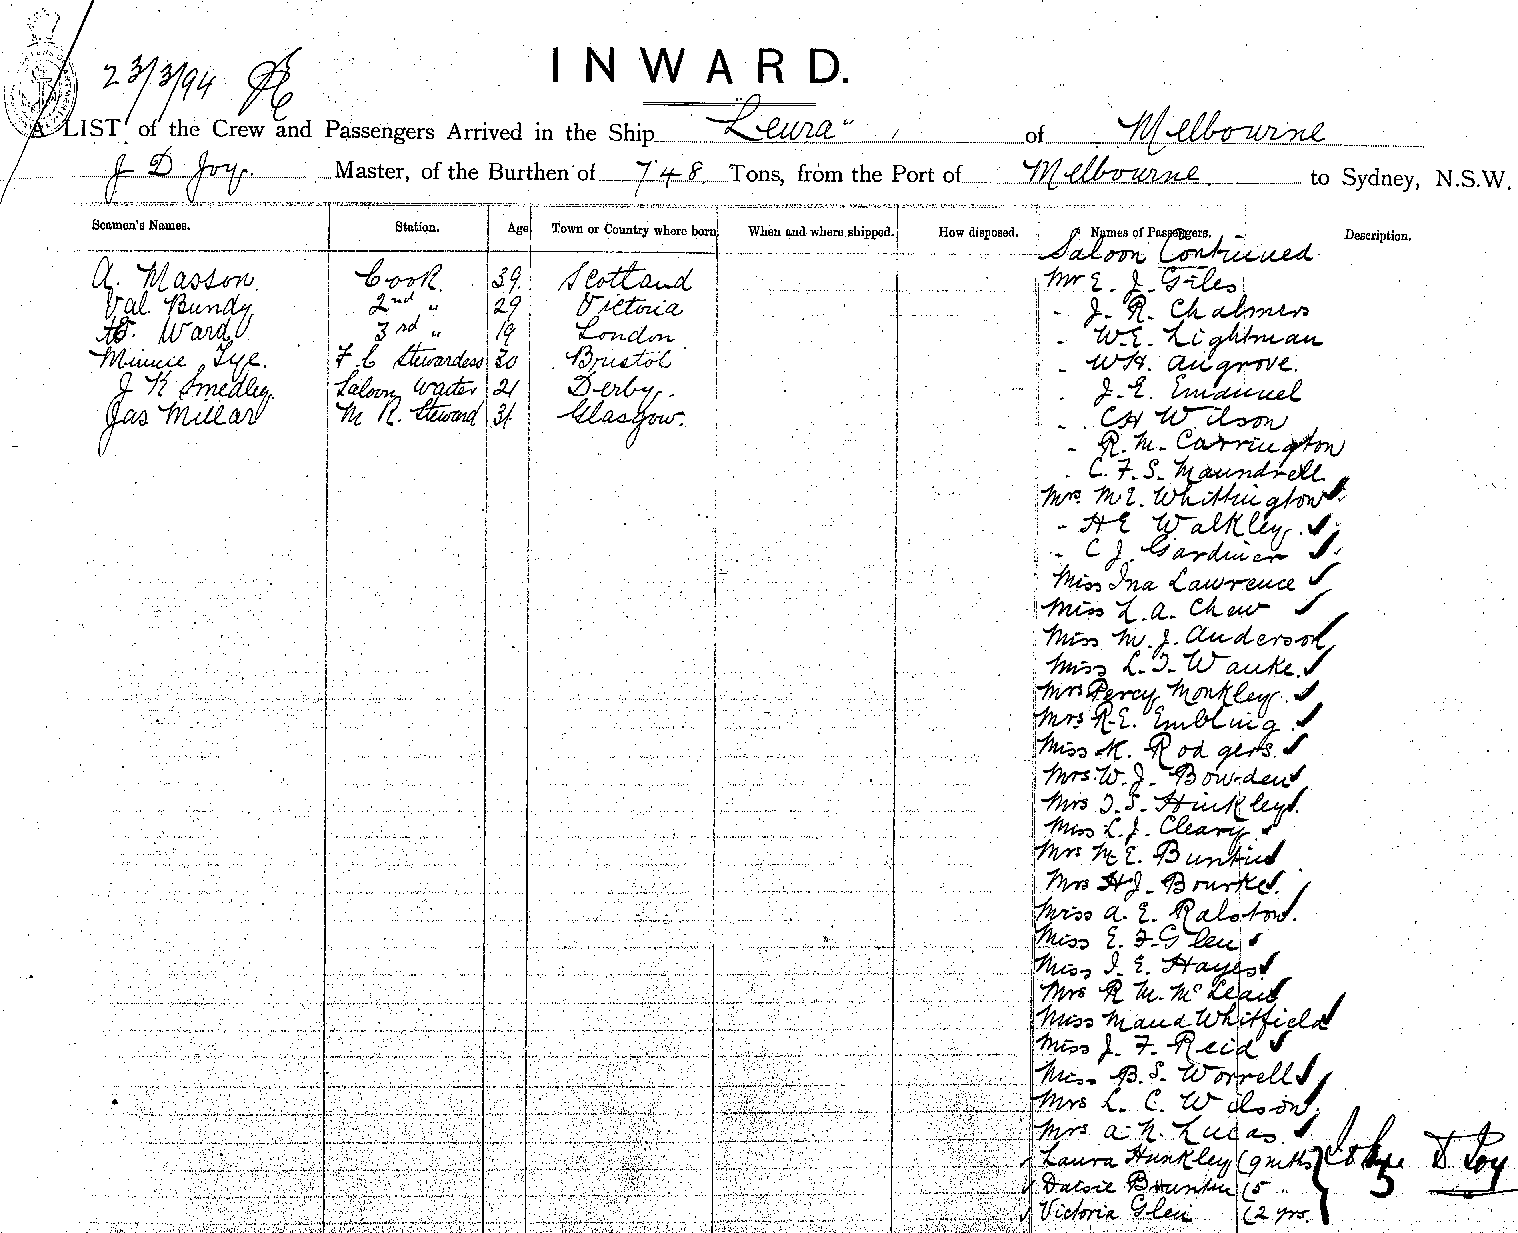 23/3/94
INWARD.
A LIST of the Crew and Passengers Arrived in the Ship "Leura" of Melbourne
J D Joy. Master, of the Burthen of 748 Tons, from the Port of Melbourne to Sydney, N.S.W.
Seamen's Names. Station. Age Town or Country where born When and where shipped. How disposed. Names of Passengers. Description.
Saloon Continued
A. Masson. Cook. 39. Scotland Mr E. J. Giles
Val Bundy 2nd " 29 Victoria - J. R. Chalmers
Ward 3rd " 19 London - W.E. Lightman
Minnie Tye. F C Stewardess 30 Bristol - W.H. Angrove.
J K Smedley. Saloon Waiter 21 Derby. J. E. Emanuel
Jas Millar M R. Steward 31 Glasgow. - CH Wilson
- R. M. Carrington
- C. F. S. Maundrell
Mrs M E. Whittington ✓
- H E Walkley. ✓
- C J. Gardiner ✓
Miss Ina Lawrence ✓
Miss L. A. Chew ✓
Miss M. J. Anderson ✓
Miss L. I. Wauke. ✓
Mrs Percy Monkley. ✓
Mrs R.E. Embling ✓
Miss K. Rodgers. ✓
Mrs. W. J. Bowden ✓
Mrs I. S. Hinkley ✓
Miss L. J. Cleary ✓
Mrs M E. Buntin ✓
Mrs H J. Bourke ✓
Miss A. E. Ralston. ✓
Miss E. F. Glen ✓
Miss I. E. Hayes ✓
Mrs R M. McLean ✓
Miss Maud Whitfield ✓
Miss J. F. Reid ✓
Miss B. S. Worrell ✓
Mrs L. C. Wilson ✓
Mrs A. N. Lucas ✓
✓ Laura Hunkley (9 mths John D Joy
✓ Daisie Bruntin (5 " 3
✓ Victoria Glen (2 yrs.